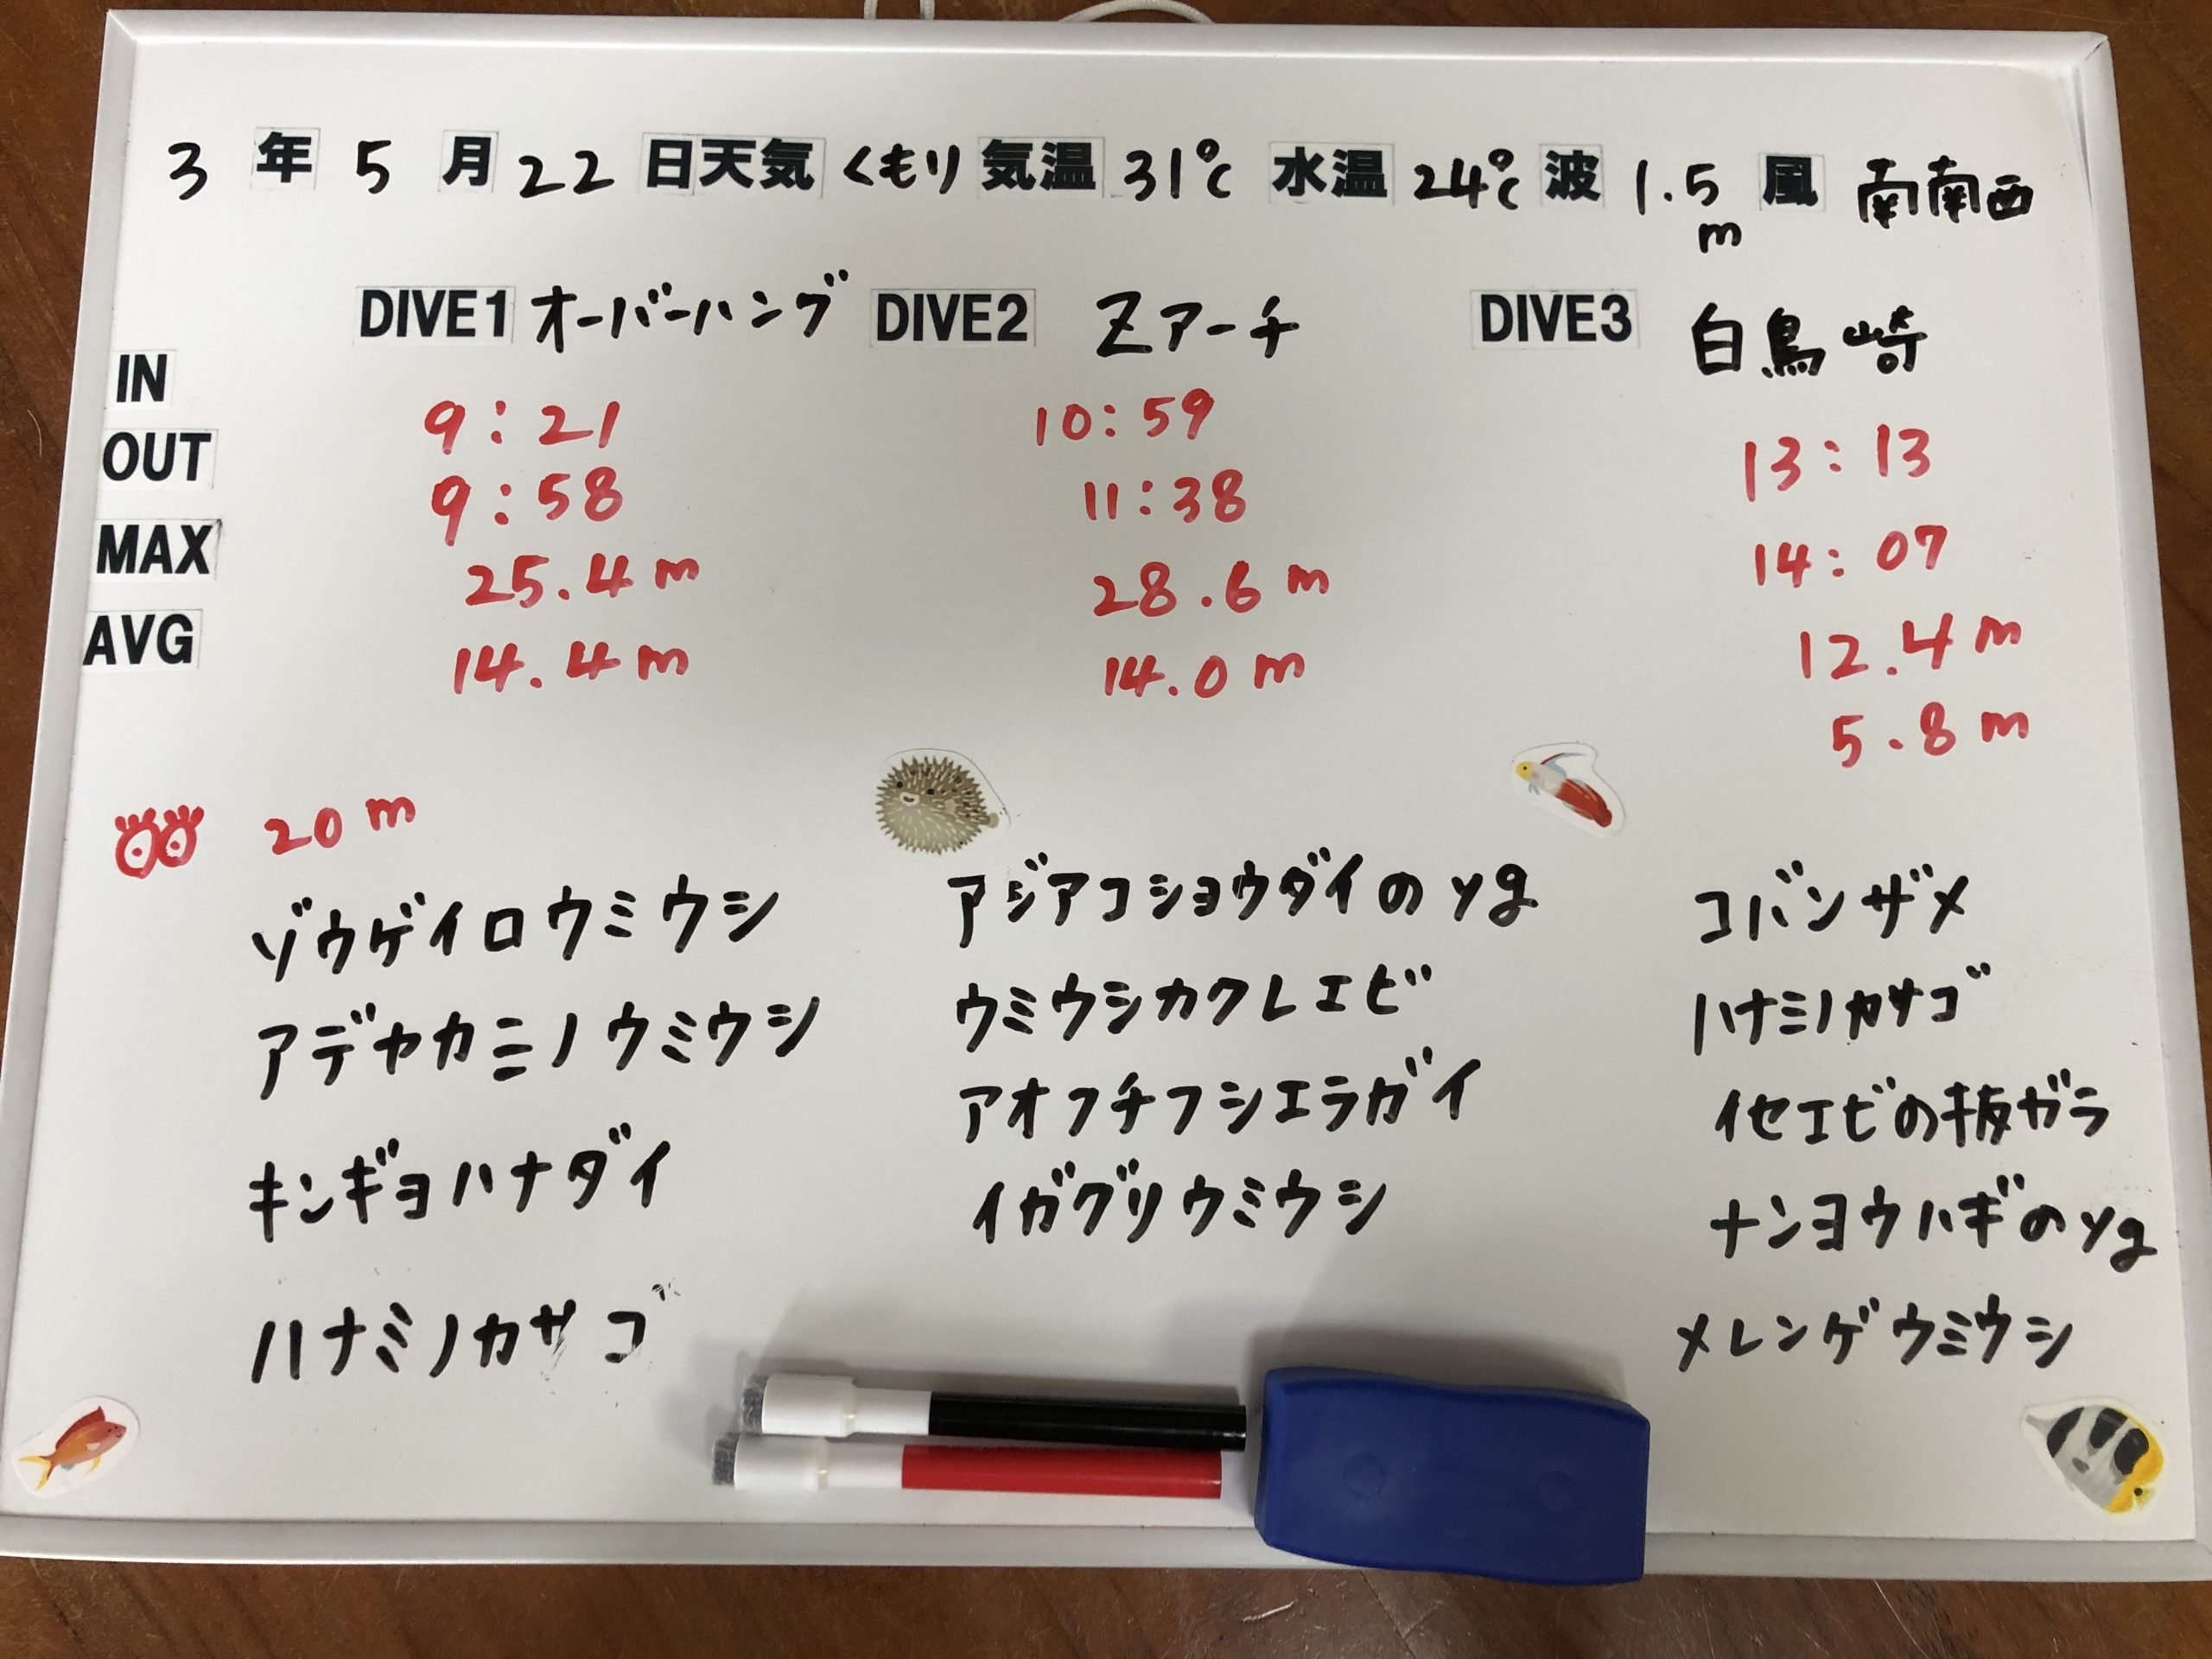 3 年 5 月 22 日 天気 くもり 気温 31℃ 水温 24℃ 波 1.5m 風 南南西
DIVE1 オーバーハング DIVE2 Zアーチ DIVE3 白鳥崎
IN 9:21 10:59 13:13
OUT 9:58 11:38 14:07
MAX 25.4m 28.6m 12.4m
AVG 14.4m 14.0m 5.8m
20m
ゾウゲイロウミウシ
アデヤカニノウミウシ
キンギョハナダイ
ハナミノカサゴ
アジアコショウダイのyg
ウミウシカクレエビ
アオフチフシエラガイ
イガグリウミウシ
コバンザメ
ハナミノカサゴ
イセエビの抜ガラ
ナンヨウハギのyg
メレンゲウミウシ